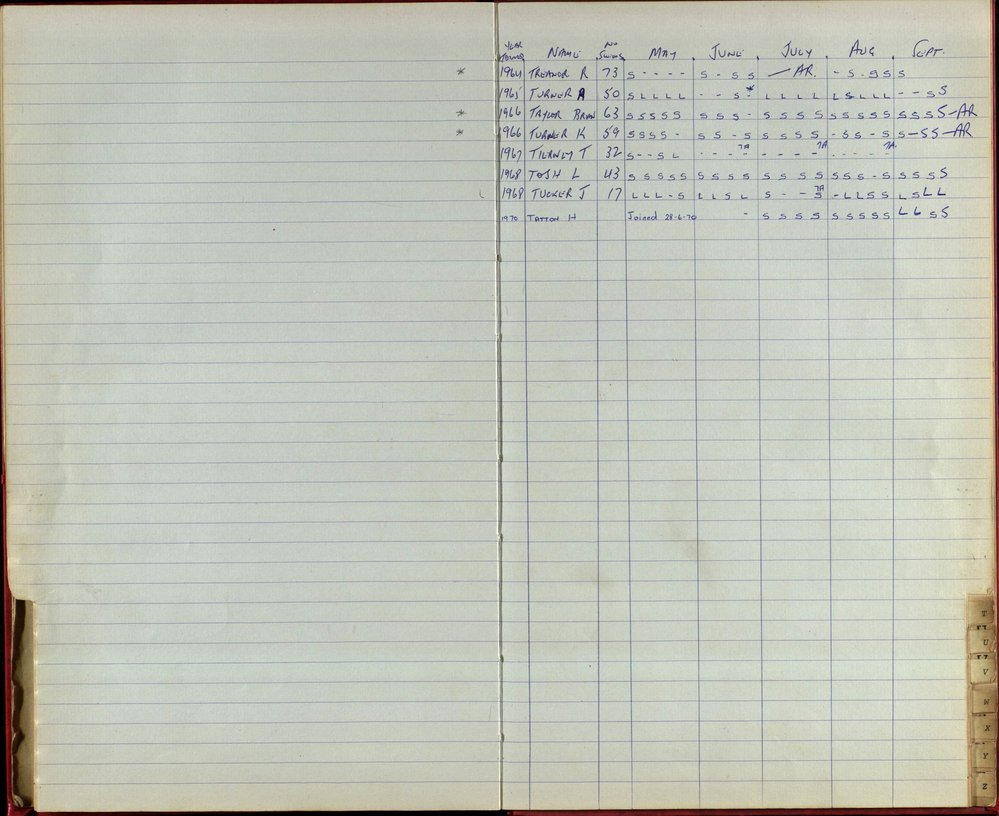 YEAR JOINED NAME NO SWIMS MAY JUNE JULY AUG SEPT.
* 1964 TREANOR R 73 S - - - - S - S S — AR. - S - S S S
1965 TURNER A 50 S L L L L - - S * L L L L L S L L L - - S S
* 1966 TAYLOR BRIAN 63 S S S S S S S S - S S S S S S S S S S S S S — AR
* 1966 TURNER K 59 S S S S - S S - S S S S S - S S - S S — S S — AR
1967 TIERNEY T 32 S - - S L - - - - 7A - - - - 7A - - - - - 7A
1968 TOSH L 43 S S S S S S S S S S S S S S S S - S S S S S
1968 TUCKER J 17 L L L - S L L S L S - - S 7A - L L S S L S L L
1970 TATTON H Joined 28-6-70 - S S S S S S S S S L L S S
T
U
V
W
X
Y
Z